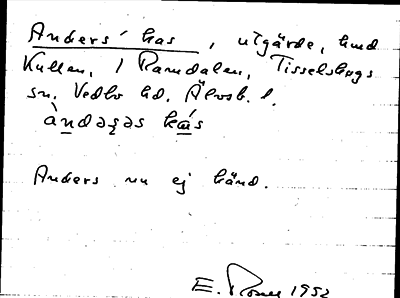 Anders' has, utgärde, hmd
Kullen, i Ramdalen, Tisselskogs
sn. Vedbo hd. Älvsb. l.
àndəʂəs há̱s
Anders nu ej känd.
E. 1952